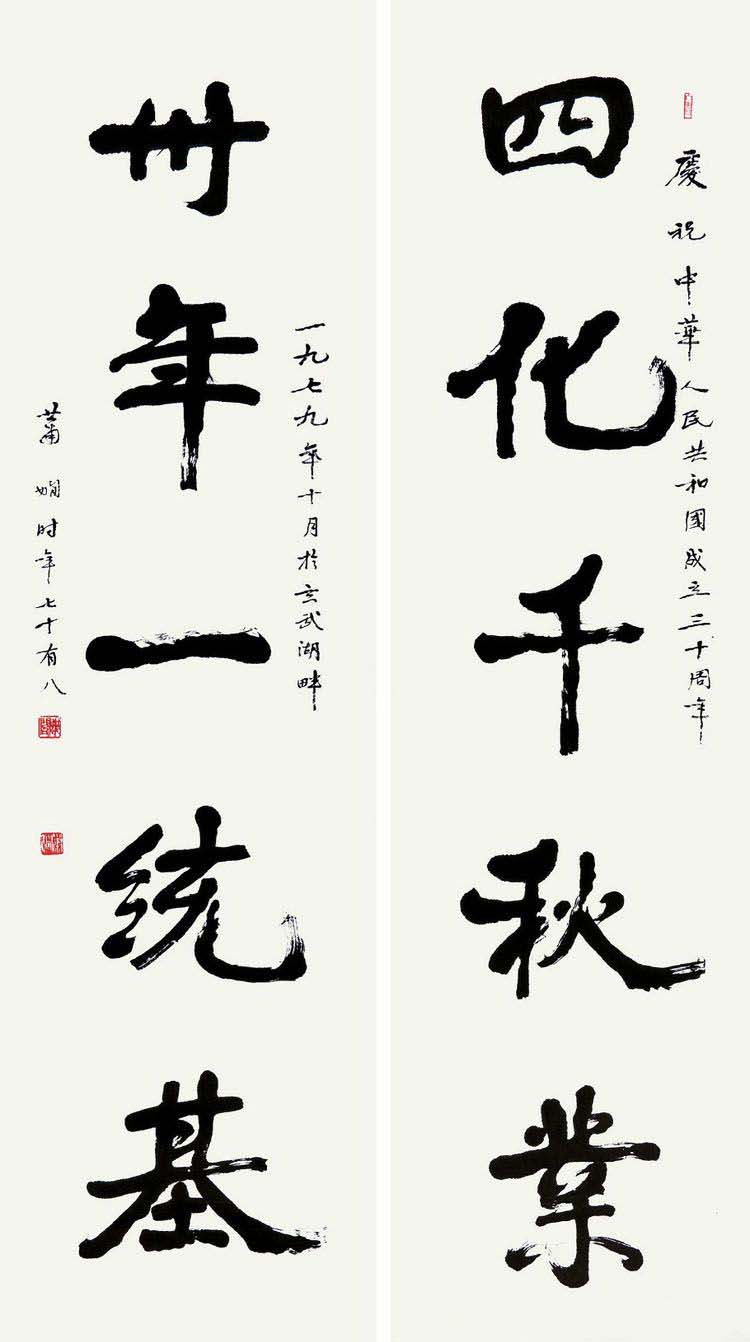 慶祝中華人民共和國成立三十周年
四化千秋業
一九七九年十月於玄武湖畔
卅年一统基
蕭嫻时年七十有八